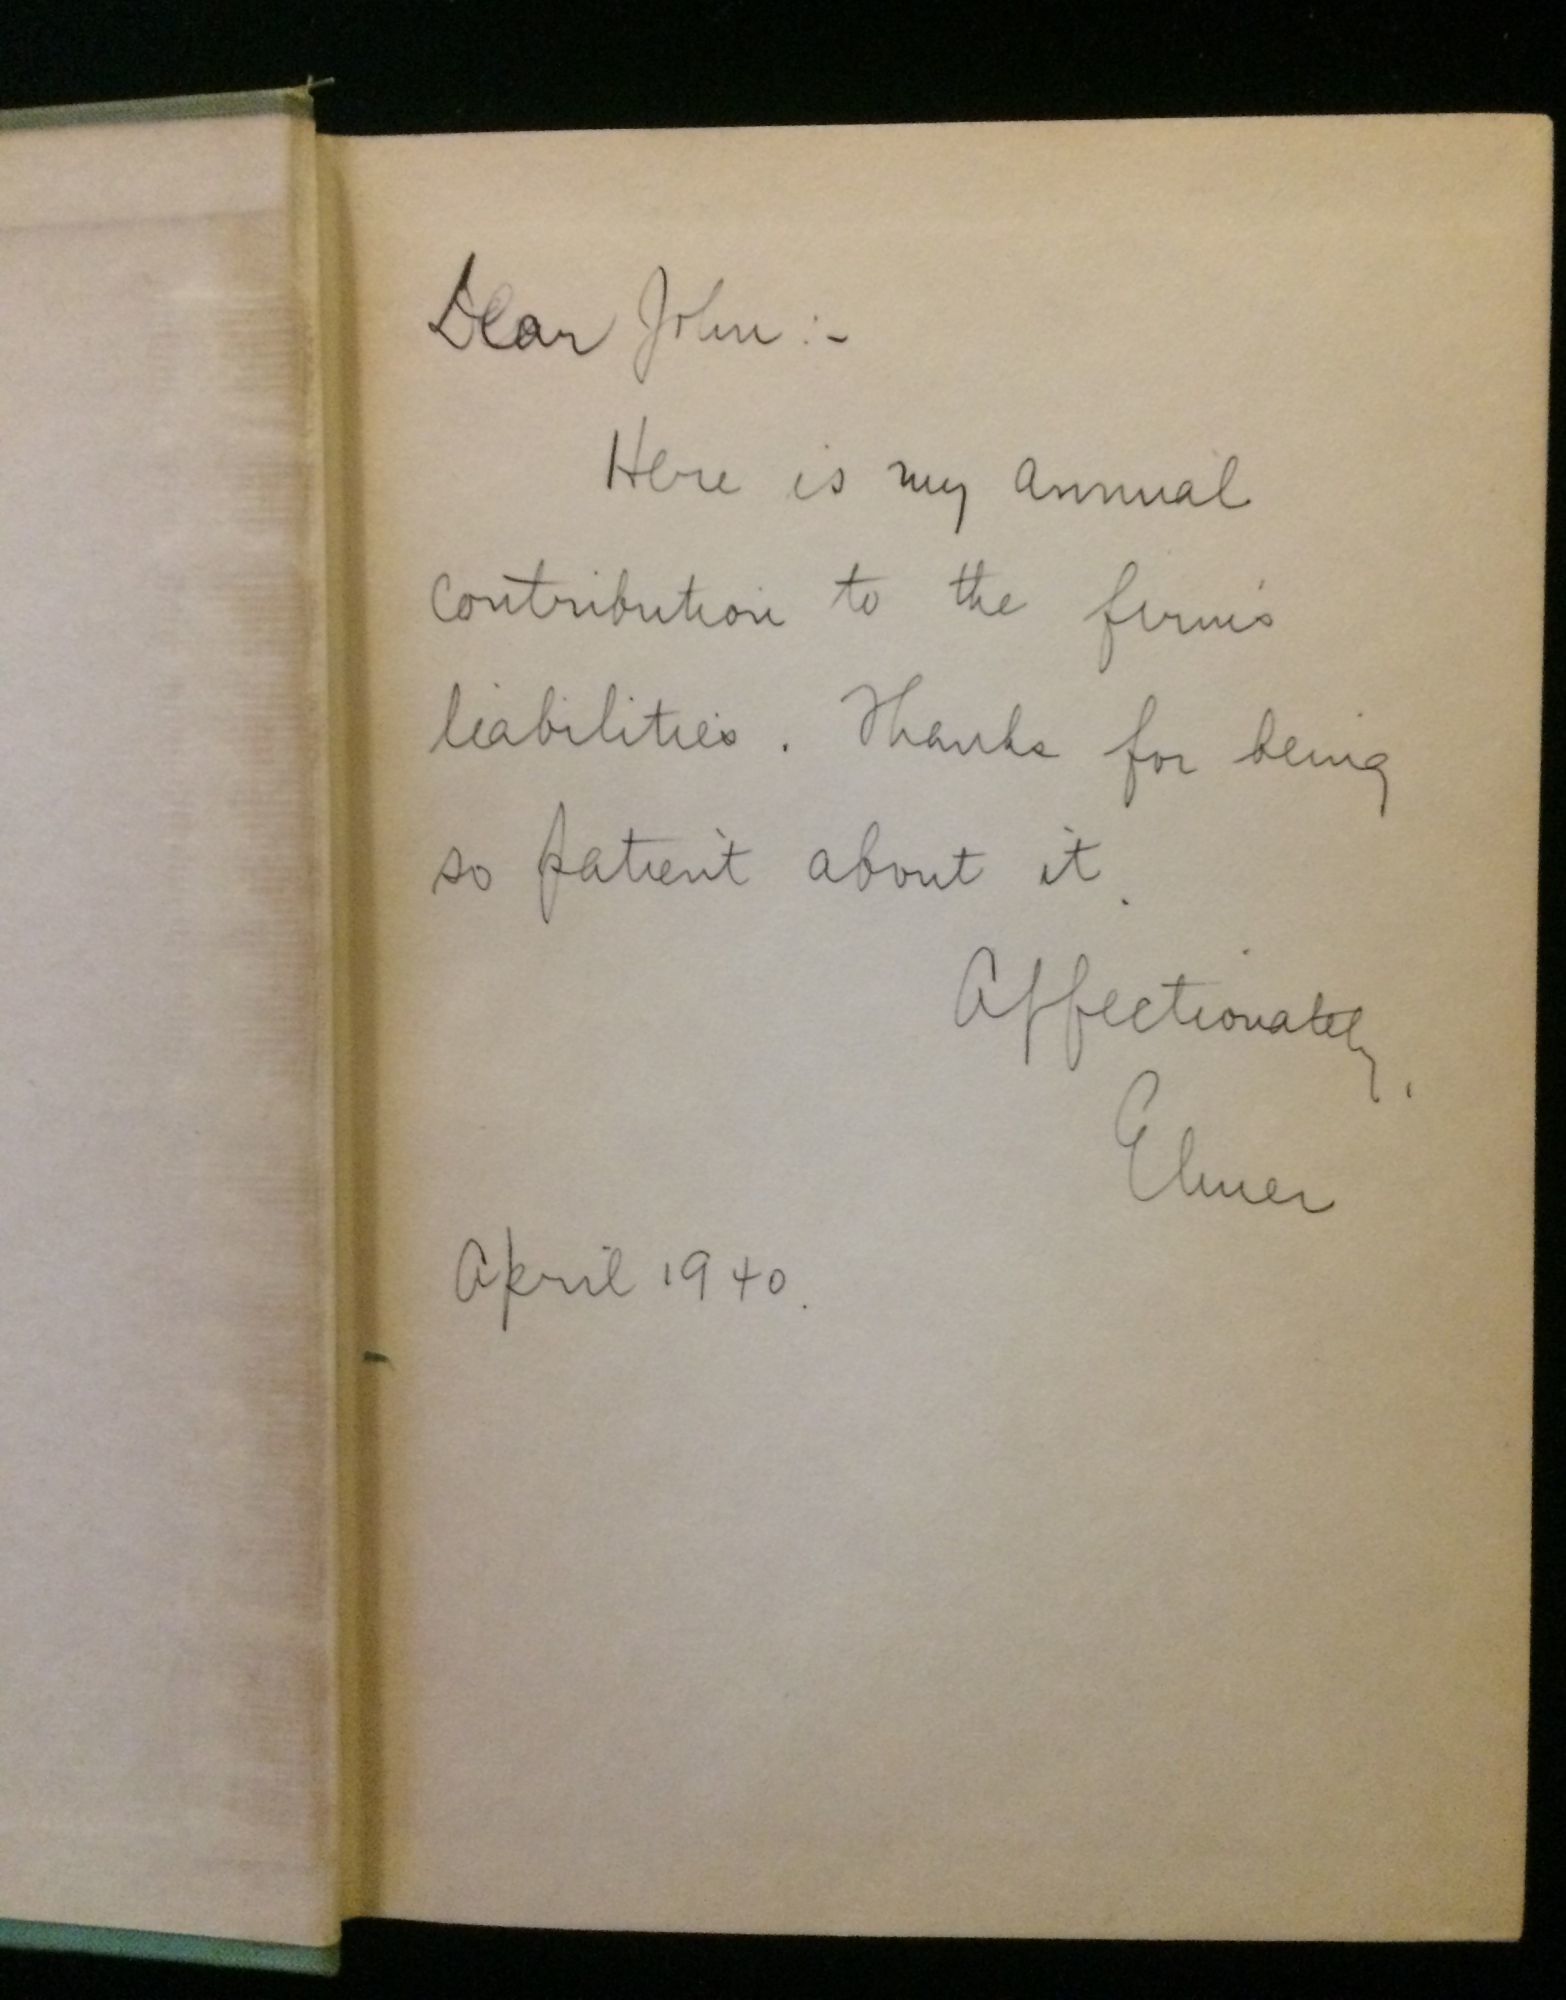 Dear John :-
Here is my annual
contribution to the firm's
liabilities. Thanks for being
so patient about it.
Affectionately,
Elmer
April 1940.